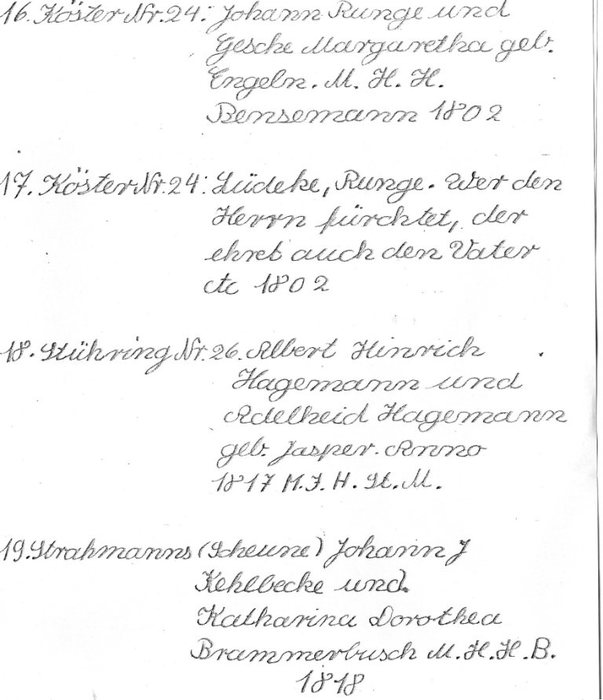 16. Köster Nr. 24: Johann Runge und
Gesche Margaretha geb.
Engeln. M. H. H.
Bensemann 1802
17. Köster Nr. 24: Lüdeke, Runge. Wer den
Herrn fürchtet, der
ehret auch den Vater
etc 1802
18. Stühring Nr. 26. Albert Hinrich
Hagemann und
Adelheid Hagemann
geb. Jasper. Anno
1817 M. J. H. St. M.
19. Strahmanns (Scheune) Johann J
Kehlbecke und
Katharina Dorothea
Brammerbusch M. H. H. B.
1818